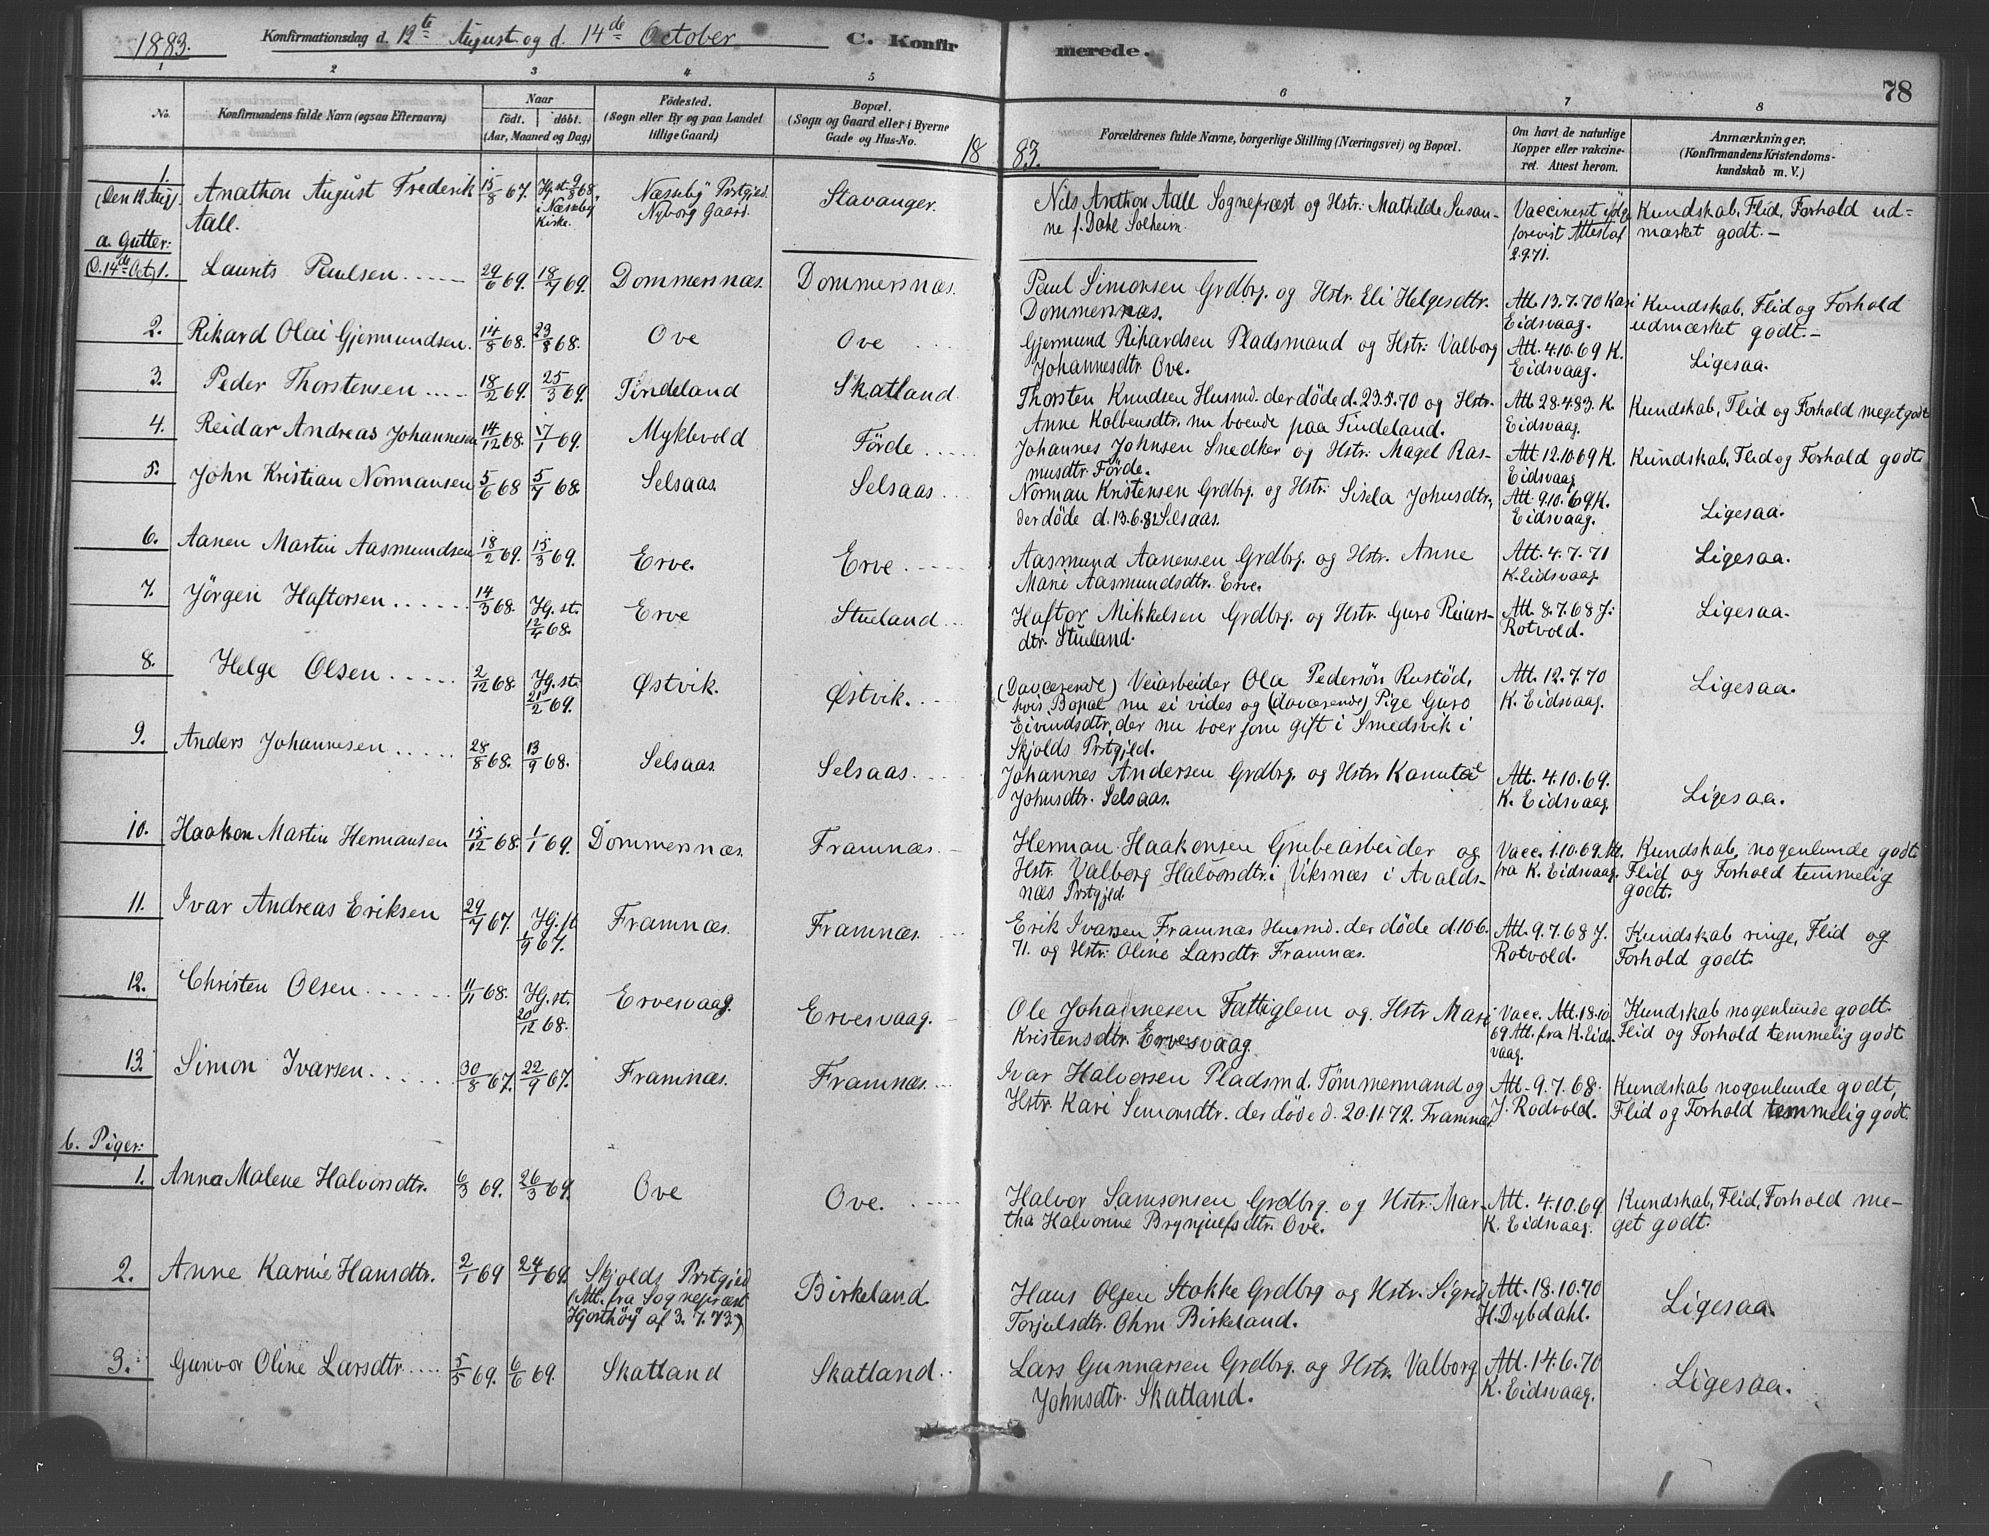 1883. Konfirmationsdag d. 12te August og d. 14de October C. Konfirmerede. 78
1 2 3 4 5 6 7 8
No. Konfirmandens fulde Navn (ogsaa Efternavn) Naar födt. döbt. (Aar, Maaned og Dag) Födested. (Sogn eller By og paa Landet tillige Gaard) Bopæl. (Sogn og Gaard eller i Byerne Gade og Hus-No. Forældrenes fulde Navne, borgerlige Stilling (Næringsvei) og Bopæl. Om havt de naturlige Kopper eller vakcineret. Attest herom. Anmærkninger, (Konfirmandens Kristendomskundskab m. V.)
18 83.
1. (Den 12 Aug). Anathon August Frederik Aall. 15/8 67. Hj. st. 9/8 68. i Næsseby Kirke. Næsseby Prstgjeld. Nyborg Gaard. Stavanger. Nils Anthon Aall Sognepræst og Hstr: Mathilde Susanne f. Dahl Solheim. Vaccineret ifølge forevist Attest af 2.9.71. Kundskab, Flid, Forhold udmærket godt. -
a. Gutter:
(D. 14de Oct.) 1. Laurits Paulsen 29/6 69. 18/7 69. Dommersnæs. Dommersnæs. Paul Simonsen Grdbrg. og Hstr. Eli Helgesdtr. Dommersnæs. Att. 13.7.70 Kari Eidsvaag. Kundskab, Flid og Forhold udmærket godt. -
2. Rikard Olai Gjermundsen. 14/8 68. 23/8 68. Ove Ove Gjermund Rikardsen Pladsmand og Hstr: Valborg Johannesdtr Ove. Att. 4.10.69 K. Eidsvaag. Ligesaa.
3. Peder Thorstensen 18/2 69. 25/3 69. Tindeland Skatland Thorsten Knudsen Husmd. der døde d. 23.5.70 og Hstr. Anne Kolbensdtr. nu boende paa Tindeland. Att. 28.4.83. K. Eidsvaag. Kundskab, Flid og Forhold meget godt
4. Reidar Andreas Johannesen 14/12 68. 17/1 69. Myklevold Förde Johannes Johnsen Snedker og Hstr: Magel Rasmusdtr Förde. Att 12.10.69 K. Eidsvaag Kundskab, Flid og Forhold godt
5. John Kristian Normansen 5/6 68 5/7 68. Selsaas. Selsaas Norman Kristensen Grdbrg. og Hstr: Sisela Johnsdtr, der døde d. 13.6.81 Selsaas. Att. 9.10.69 K. Eidsvaag. Ligesaa.
6. Aanen Martin Aasmundsen 18/2 69. 15/3 69. Erve. Erve Aasmund Aanensen Grdbrg. og Hstr. Anne Marie Aasmundsdtr. Erve. Att. 4.7.71 K. Eidsvaag. Ligesaa.
7. Jörgen Haftorsen 14/3 68. Hj. st. 12/4 68. Erve Stueland Haftor Mikkelsen Grdbrg. og Hstr. Guro Reiarsdtr. Stueland. Att. 8.7.68 J: Rotvold. Ligesaa.
8. Helge Olsen 2/12 68. Hj. st. 21/2 69. Østvik. Østvik. (Daværende) Veiarbeider Ola Pedersön Rustöd, hvis Bopæl nu ei vides og (daværende) Pige Guro Eivindsdtr, der nu boer som gift i Smedsvik i Skjolds Prstgjeld. Att. 12.7.70 K. Eidsvaag. Ligesaa.
9. Anders Johannesen 28/8 68. 13/9 68. Selsaas. Selsaas. Johannes Andersen Grdbrg. og Hstr. Kanutæ Johnsdtr. Selsaas. Att. 4.10.69. K. Eidsvaag. Ligesaa.
10. Haakon Martin Hermansen 15/12 68. 1/1 69. Dommersnæs. Framnæs. Herman Haakonsen Grubearbeider og Hstr. Valborg Halvorsdtr. i Viksnæs i Avaldsnæs Prstgjeld. Vacc. 1.10.69. Att. fra K. Eidsvaag. Kundskab, nogenlunde godt Flid og Forhold temmelig godt.
11. Ivar Andreas Eriksen 29/7 67. Hj. st. 1/9 67. Framnæs. Framnæs. Erik Ivarsen Framnæs Husmd. der døde d. 10.6.71. og Hstr: Oline Larsdtr Framnæs. Att. 9.7.68 J. Rotvold. Kundskab ringe, Flid og Forhold godt.
12. Christen Olsen 11/11 68. Hj. st. 20/12 68. Ervesvaag. Ervesvaag. Ole Johannesen Fattiglem og Hstr Mari Kristensdtr. Ervesvaag. Vacc. Att. 18.10.69 Att. fra K. Eidsvaag. Kundskab nogenlunde godt. Flid og Forhold temmelig godt
13. Simon Ivarsen 30/8 67. 22/9 67. Framnæs. Framnæs. Ivar Halvorsen Pladsmd. Tømmermand og Hstr. Kari Simonsdtr. der døde d. 20.11.72. Framnæs. Att. 9.7.68. J. Rodvold. Kundskab nogenlunde godt, Flid og Forhold temmelig godt
b. Piger:
1. Anna Malene Halvorsdtr. 6/3 69. 26/3 69. Ove Ove. Halvor Samsonsen Grdbrg. og Hstr: Martha Halvorine Brynjulfsdtr. Ove. Att. 4.10.69 K. Eidsvaag. Kundskab, Flid, Forhold meget godt.
2. Anne Karine Hansdtr. 2/1 69 24/1 69. Skjolds Prstgjeld (Att. fra Sognepræst Hjorthöy af 3.7.73.) Birkeland Hans Olsen Stokke Grdbrg og Hstr. Sigrid Torjulsdtr. Ohm Birkeland. Att. 18.10.70 H. Dybdahl. Ligesaa.
3. Gunvor Oline Larsdtr 5/5 69. 6/6 69. Skatland Skatland Lars Gunnarsen Grdbrg. og Hstr. Valborg Johnsdtr Skatland. Att. 14.6.70 K. Eidsvaag. Ligesaa.